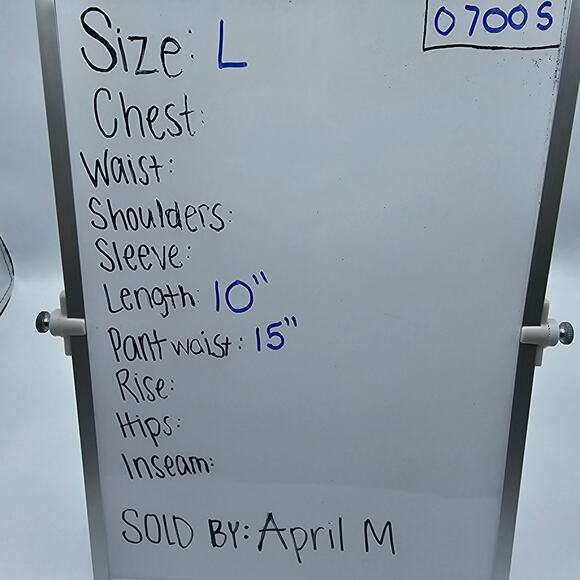 07005
Size: L
Chest:
Waist:
Shoulders:
Sleeve:
Length: 10"
Pant waist: 15"
Rise:
Hips:
Inseam:
SOLD BY: April M